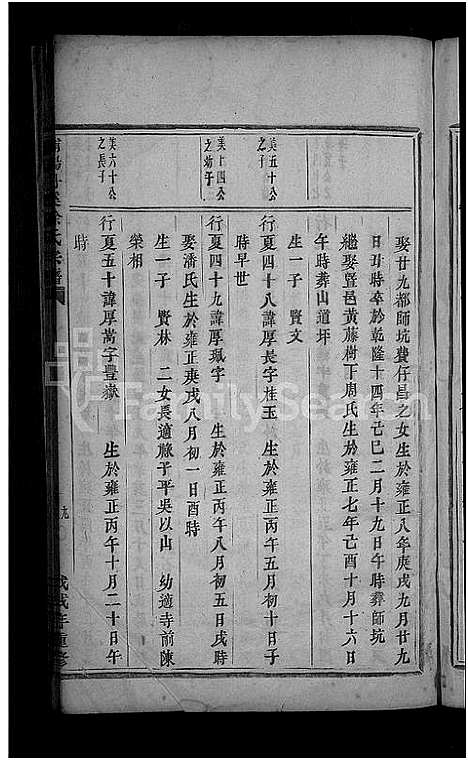 娶廿九都師坑龔仔昌之女生於雍正八年庚戌九月廿九
日丑時卒於乾隆十四年己巳二月十九日午時葬師坑
繼娶暨邑黃藤樹下周氏生於雍正七年己酉十月十六日
午時葬山道坪
生一子 賢文
美五十公
之子
行夏四十八諱厚長字桂玉 生於雍正丙午五月初十日子
時早世
美上四公
之幼子
行夏四十九諱厚珮字 生於雍正丙午八月初五日戌時
娶潘氏生於雍正庚戌八月初一日酉時
生一子 賢林 二女長適脉子平吳以山 幼適寺前陳
榮相
美六十公
之長子
行夏五十諱厚嵩字豐嶽 生於雍正丙午十月二十日午
時
氏宗譜
戊戌年重修
FamilySearch